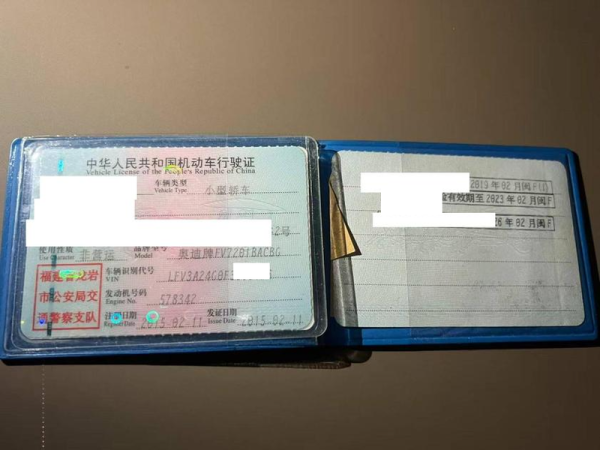 中华人民共和国机动车行驶证
Vehicle License of the People's Republic of China
车辆类型 小型轿车
Vehicle Type
2号
使用性质 非营运 品牌型号 奥迪牌FV7201BACBG
Use Character Model
福建省龙岩
市公安局交
通警察支队
车辆识别代号 LFV3A24G0F3
VIN
发动机号码 578342
Engine No.
注册日期 2015-02-11 发证日期 2015-02-11
Register Date Issue Date
2019年02月闽F(1)
有效期至2023年02月闽F
26年02月闽F